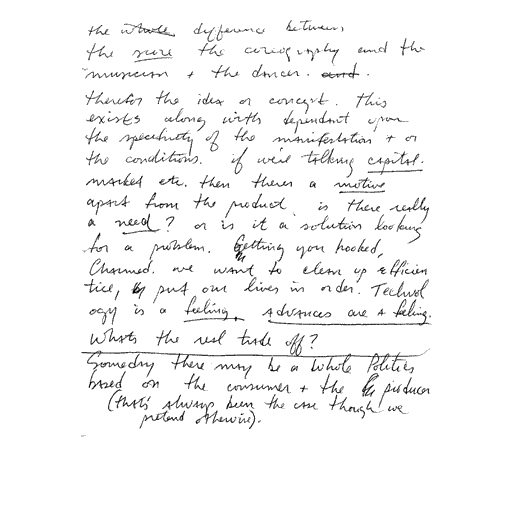 the whole difference between
the score the coreography and the
musician + the dancer. and.
therefor the idea or concept. This
exists along with dependant upon
the specitivity of the manifestation + or
the conditions. if we're talking capital.
market etc. then theres a motive
apart from the product. is there really
a need? or is it a solution looking
for a problem. Getting you hooked,
Charmed. we want to clean up efficien
tice, put our lives in order. Technol
ogy is a feeling. advances are a feeling.
Whats the real trade off?
Someday there may be a whole Politics
based on the consumer + the producer
(that's always been the case though we
pretend otherwise).